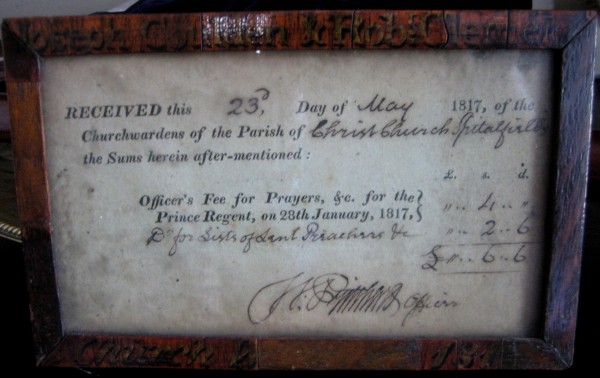 Joseph & Robt Clemen
RECEIVED this 23d, Day of May 1817, of the
Churchwardens of the Parish of Christ Church Spitalfields
the Sums herein after-mentioned :
£. s. d.
Officer's Fee for Prayers, &c. for the
Prince Regent, on 28th January, 1817, } " .. 4 .. "
Do for Lists of Lent Preachers &c " .. 2 .. 6
£ " .. 6 .. 6
Officer
Church